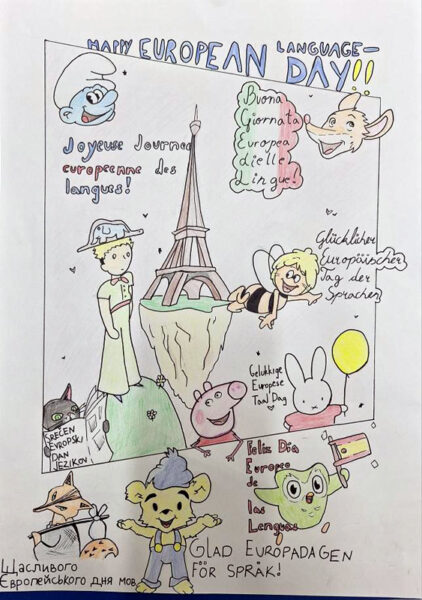 HAPPY EUROPEAN LANGUAGE-
DAY!!
Joyeuse Journee
européenne des
langues!
Buona
Giornata
Europea
dielle
Lingue!
Glücklicher
Europäischer
Tag der
Sprachen
Gelukkige
Europese
Taal Dag
SREČEN
EVROPSKI
DAN
JEZIKOV
Feliz Día
Europeo
de
las
Lenguas
GLAD EUROPADAGEN
FÖR SPRÅK!
Щасливого
Європейського дня мов